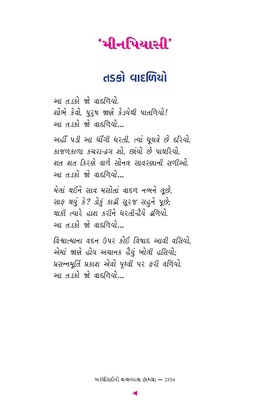 'મીનપિયાસી'
તડકો વાદળિયો
આ તડકો જો વાદળિયો.
શોભે કેવો, પુરુષ જાણે કેડયેથી પાતળિયો!
આ તડકો જો વાદળિયો...
અહીં પડી આ ધીંગી ધરતી, ત્યાં ઘૂઘવે છે દરિયો,
કાજળકાળા કચરા-ઢગ શો, છાંયો છે પાથરિયો,
શત શત કિરણે વાળે સોનલ સાવરણાની સળીઓ.
આ તડકો જો વાદળિયો...
મેલાં થઈને સાવ મસોતાં વાદળ નભને લૂછે,
સાફ થયું કે? ડોકું કાઢી સૂરજ સહુને પૂછે;
થાકી ત્યારે હાશ કરીને ધરતીહૈયે ઢળિયો.
આ તડકો જો વાદળિયો...
વિશ્વાત્માના વદન ઉપર કોઈ વિષાદ આવી વસિયો.
એમાં જાણે હોય અચાનક હૈયું ખોલી હસિયો;
પ્રસન્નમૂર્તિ પ્રકાશ એવો પૃથ્વી પર ફરી વળિયો.
આ તડકો જો વાદળિયો...
અરધીસદીની વાચનયાત્રા – 2334